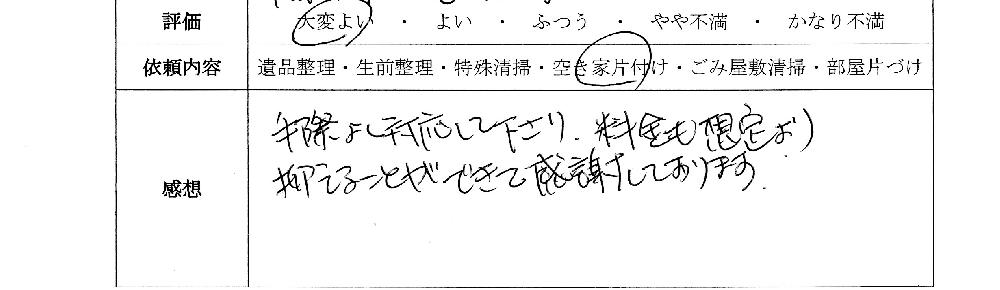 評価 大変よい ・ よい ・ ふつう ・ やや不満 ・ かなり不満
依頼内容 遺品整理・生前整理・特殊清掃・空き家片付け・ごみ屋敷清掃・部屋片づけ
感想
手際よし対応して下さり、料金も想定より
抑えることができて感謝しております。